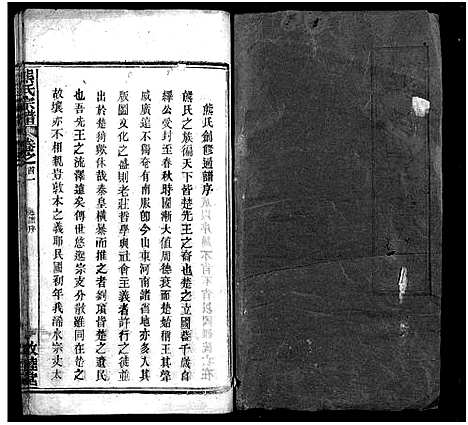 熊氏創修通譜序
熊氏之族徧天下皆楚先王之裔也楚之立國蓋千歲自
繹公受封至春秋時國漸大值周德衰而楚始稱王其聲
威廣遠不獨奄有南服卽今山東河南諸省地亦多入其
版圖文化之盛則老莊哲學與社會主義者許行之徒並
出於楚猗歟休哉秦皇橫暴而推之者劉項皆楚之遺民
也吾先王之流澤遠矣傳世悠遠宗支分散雖同在楚之
故壤亦不相親豈敦本之義耶民國初年我浠水宗丈太
熊氏宗譜
卷之首
譜序
一
敦睦堂